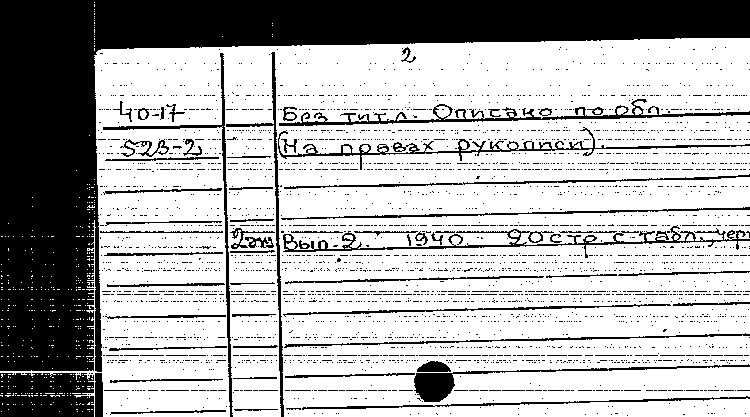 2
40-17 Без титл. Описано по обл.
523-2 (На правах рукописи).
2экз Вып. 2. 1940. 20 стр. с табл., чер